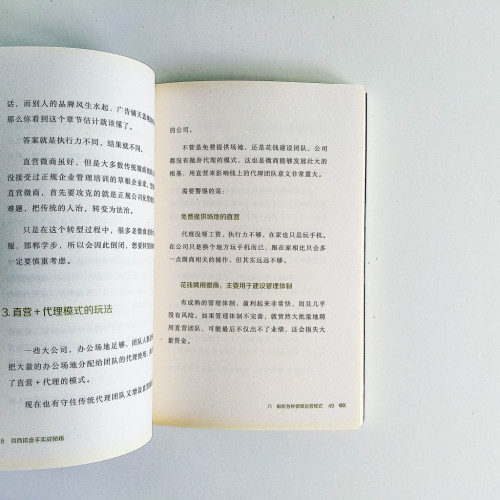 话，而别人的品牌风生水起，广告铺天盖
那么你看到这个章节估计就该懂了。
答案就是执行力不同，结果就不同。
直营微商虽好，但是大多数传统微商
没接受过正规企业管理培训的草根企业，
直营微商，首先要攻克的就是正规公司化
难题，把传统的人治，转变为法治。
只是在这个转型过程中，很多老微商
服、邯郸学步，所以会因此倒闭，想要转型
一定要慎重考虑。
3.直营＋代理模式的玩法
一些大公司，办公场地足够，团队人
把大量的办公场地分配给团队的代理使用，
了直营＋代理的模式。
现在也有守住传统代理团队又增设直营
8 微商操盘手实战秘籍
的公司。
不管是免费提供场地，还是花钱建设团队，公司
都没有抛弃代理的模式，这也是微商能够发展壮大的
根基，用直营来影响线上的代理团队意义非常重大。
需要警惕的是：
免费提供场地的直营
代理没领工资，执行力不够，在家也只是玩手机。
在公司只是换个地方玩手机而已，跟在家相比只会多
一点微商相关的操作，但其实远远不够。
花钱聘用微商，主要用于建设管理体制
有成熟的管理体制，盈利起来非常快，而且几乎
没有风险。如果管理体制不完善，就贸然大批量地聘
用直营团队，可能最后不仅出不了业绩，还会损失大
量资金。
六 解析各种微商运营模式 49